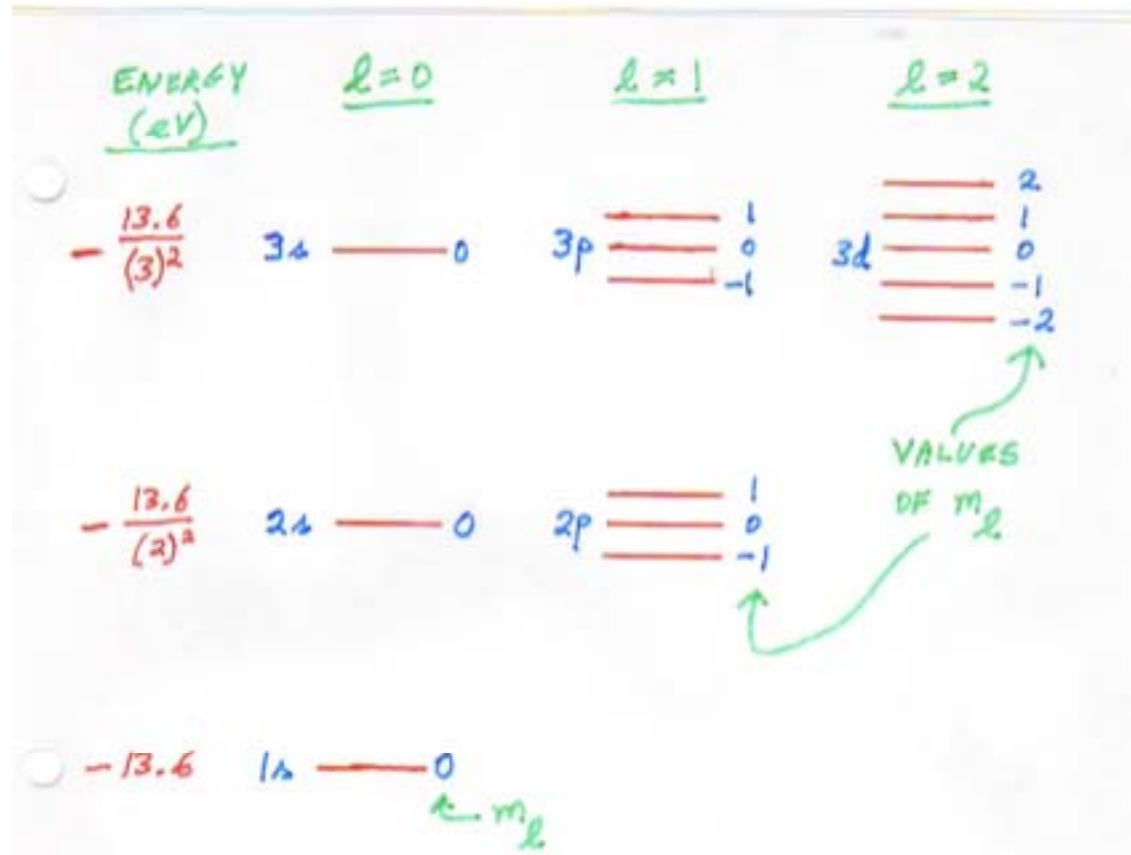 ENERGY l=0 l=1 l=2
(eV)
2
1 1
- 13.6/(3)² 3s 0 3p 0 3d 0
-1 -1
-2
VALUES
1 OF m_l
- 13.6/(2)² 2s 0 2p 0
-1
-13.6 1s 0
m_l